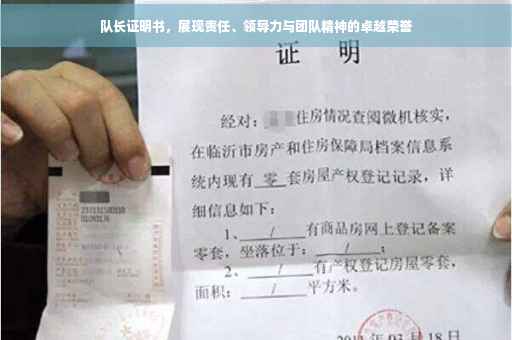 队长证明书，展现责任、领导力与团队精神的卓越荣誉
证 明
经对：住房情况查阅微机核实，
在临沂市房产和住房保障局档案信息系
统内现有 零 套房屋产权登记记录，详
细信息如下：
1、 / 有商品房网上登记备案
零套，坐落位于： / ；
2、 / 有产权登记房屋零套，
面积： / 平方米。
03月18日